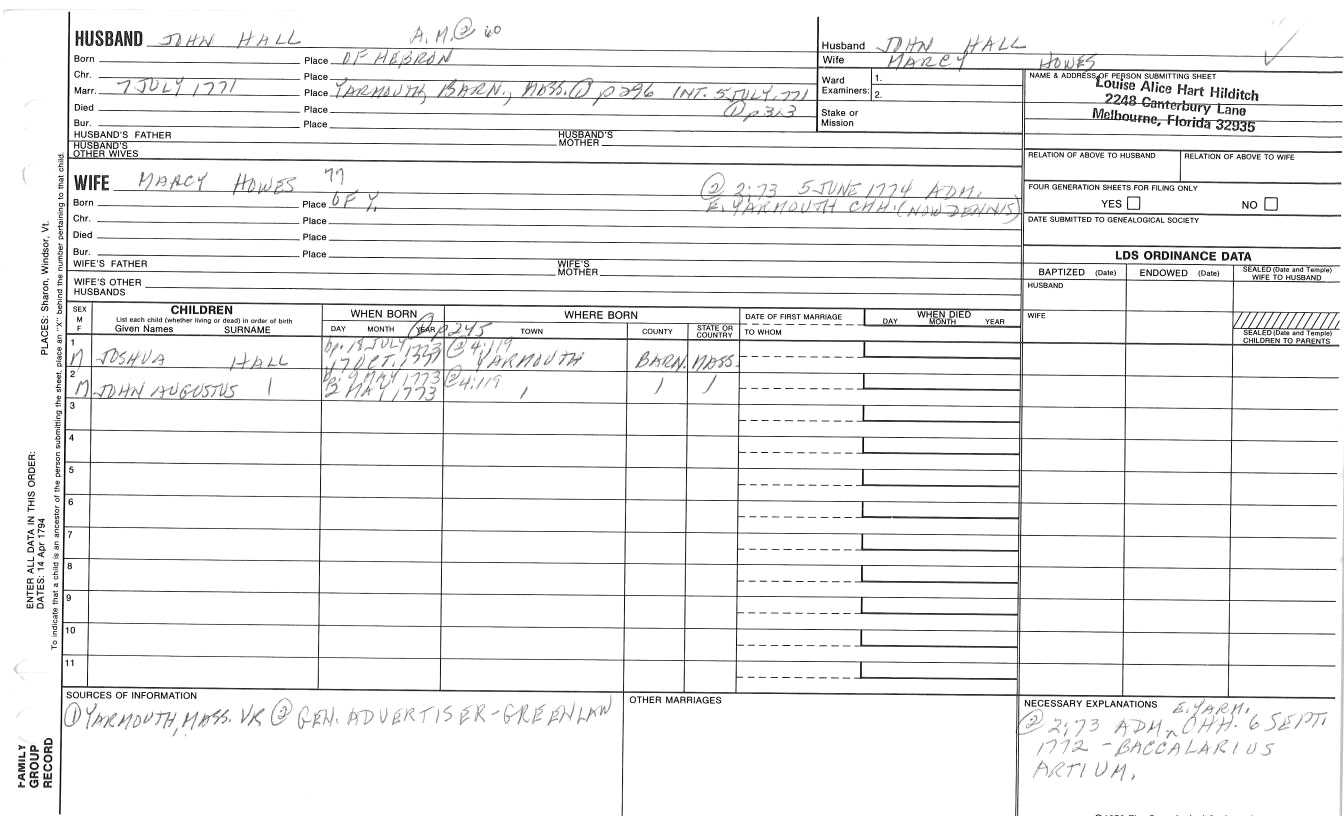 HUSBAND JOHN HALL A.M. ② 60
Born Place OF HEBRON
Chr. Place
Marr. 7 JULY 1771 Place YARMOUTH, BARN., MASS. ① p296 INT. 5 JULY, 1771
Died Place ① p323
Bur. Place
HUSBAND'S FATHER HUSBAND'S MOTHER
HUSBAND'S OTHER WIVES
Husband JOHN HALL
Wife MARCY HOWES
Ward Examiners: 1.
2.
Stake or Mission
NAME & ADDRESS OF PERSON SUBMITTING SHEET
Louise Alice Hart Hilditch
2248 Canterbury Lane
Melbourne, Florida 32935
RELATION OF ABOVE TO HUSBAND RELATION OF ABOVE TO WIFE
FOUR GENERATION SHEETS FOR FILING ONLY
YES NO
DATE SUBMITTED TO GENEALOGICAL SOCIETY
WIFE MARCY HOWES 77
② 2:73 5 JUNE 1774 ADM.
Born Place OF Y. E. YARMOUTH CHH. (NOW DENNIS)
Chr. Place
Died Place
Bur. Place
WIFE'S FATHER WIFE'S MOTHER
WIFE'S OTHER HUSBANDS
LDS ORDINANCE DATA
BAPTIZED (Date) ENDOWED (Date) SEALED (Date and Temple) WIFE TO HUSBAND
HUSBAND
WIFE
SEALED (Date and Temple) CHILDREN TO PARENTS
SEX M F
CHILDREN
List each child (whether living or dead) in order of birth
Given Names SURNAME
WHEN BORN
DAY MONTH YEAR
① p245
WHERE BORN
TOWN COUNTY STATE OR COUNTRY
DATE OF FIRST MARRIAGE
TO WHOM
WHEN DIED
DAY MONTH YEAR
1 bp. 18 JULY 1773 @ 4:119
M JOSHUA HALL 17 OCT. YARMOUTH BARN. MASS.
2 MAY 1773 @ 4:119
M JOHN AUGUSTUS 2 MAY 1773
3
4
5
6
7
8
9
10
11
SOURCES OF INFORMATION
① YARMOUTH, MASS. VR ② GEN. ADVERTISER-GREENLAW
OTHER MARRIAGES
NECESSARY EXPLANATIONS
E. YARM.
② 2:73 ADM. ^ CHH. 6 SEPT.
1772 - BACCALARIUS
ARTIUM.
PLACES: Sharon, Windsor, Vt.
ENTER ALL DATA IN THIS ORDER:
DATES: 14 Apr 1794
To indicate that a child is an ancestor of the person submitting the sheet, place an "X" behind the number pertaining to that child.
FAMILY GROUP RECORD